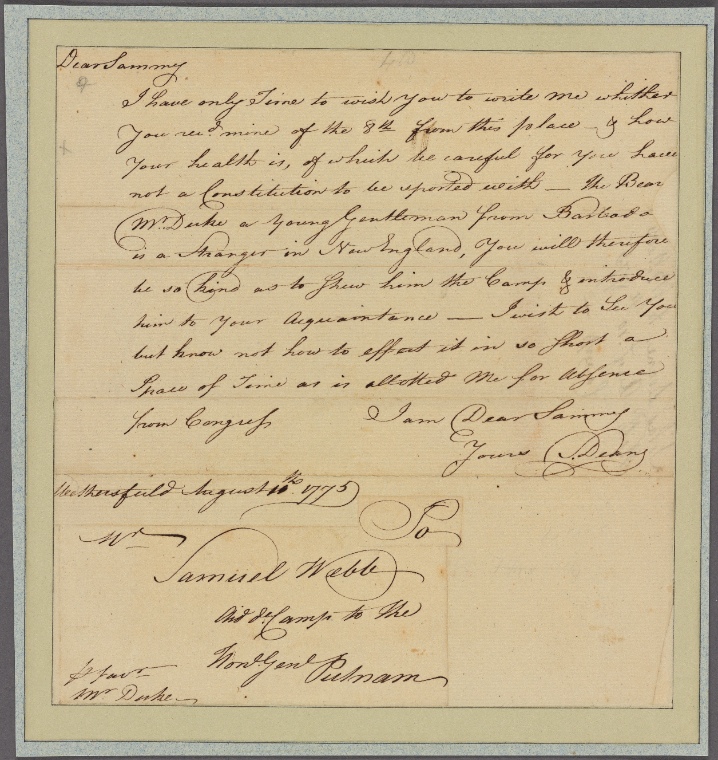 Dear Sammy
I have only Time to wish you to write me whither
You rec.d mine of the 8th from this place – & how
Your health is, of which be careful for you have
not a Constitution to be sported with — the Bear
Mr. Duke a Young Gentleman from Barbado
is a Stranger in New England, You will therefore
be so kind as to shew him the Camp & introduce
him to Your Acquaintance — I wish to See You
but know not how to effect it in so short a
Space of Time as is allotted Me for Absence
from Congress I am Dear Sammy
Yours S. Deane
Wethersfield August 10th 1775
To
Mr
Samuel Webb
Aid de Camp to the
Hond. Genl. Putnam
favr
Mr Duke